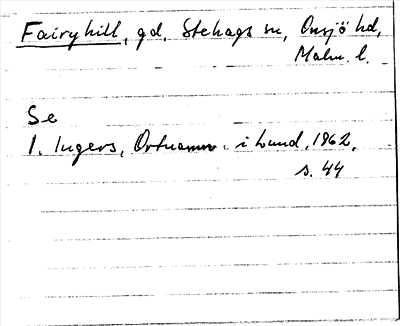 Fairyhill, gd, Stehags sn, Onsjö hd,
Malm. l.
Se
1. Ingers, Ortnamn i Lund, 1962,
s. 44